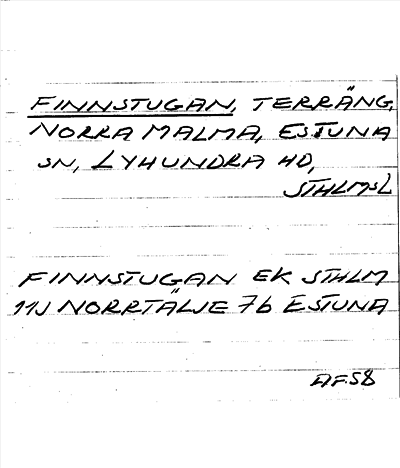 FINNSTUGAN, TERRÄNG,
NORRA MALMA, ESTUNA
SN, LYHUNDRA HD,
STHLMSL
FINNSTUGAN EK STHLM
11J NORRTÄLJE 7b ESTUNA
AF58